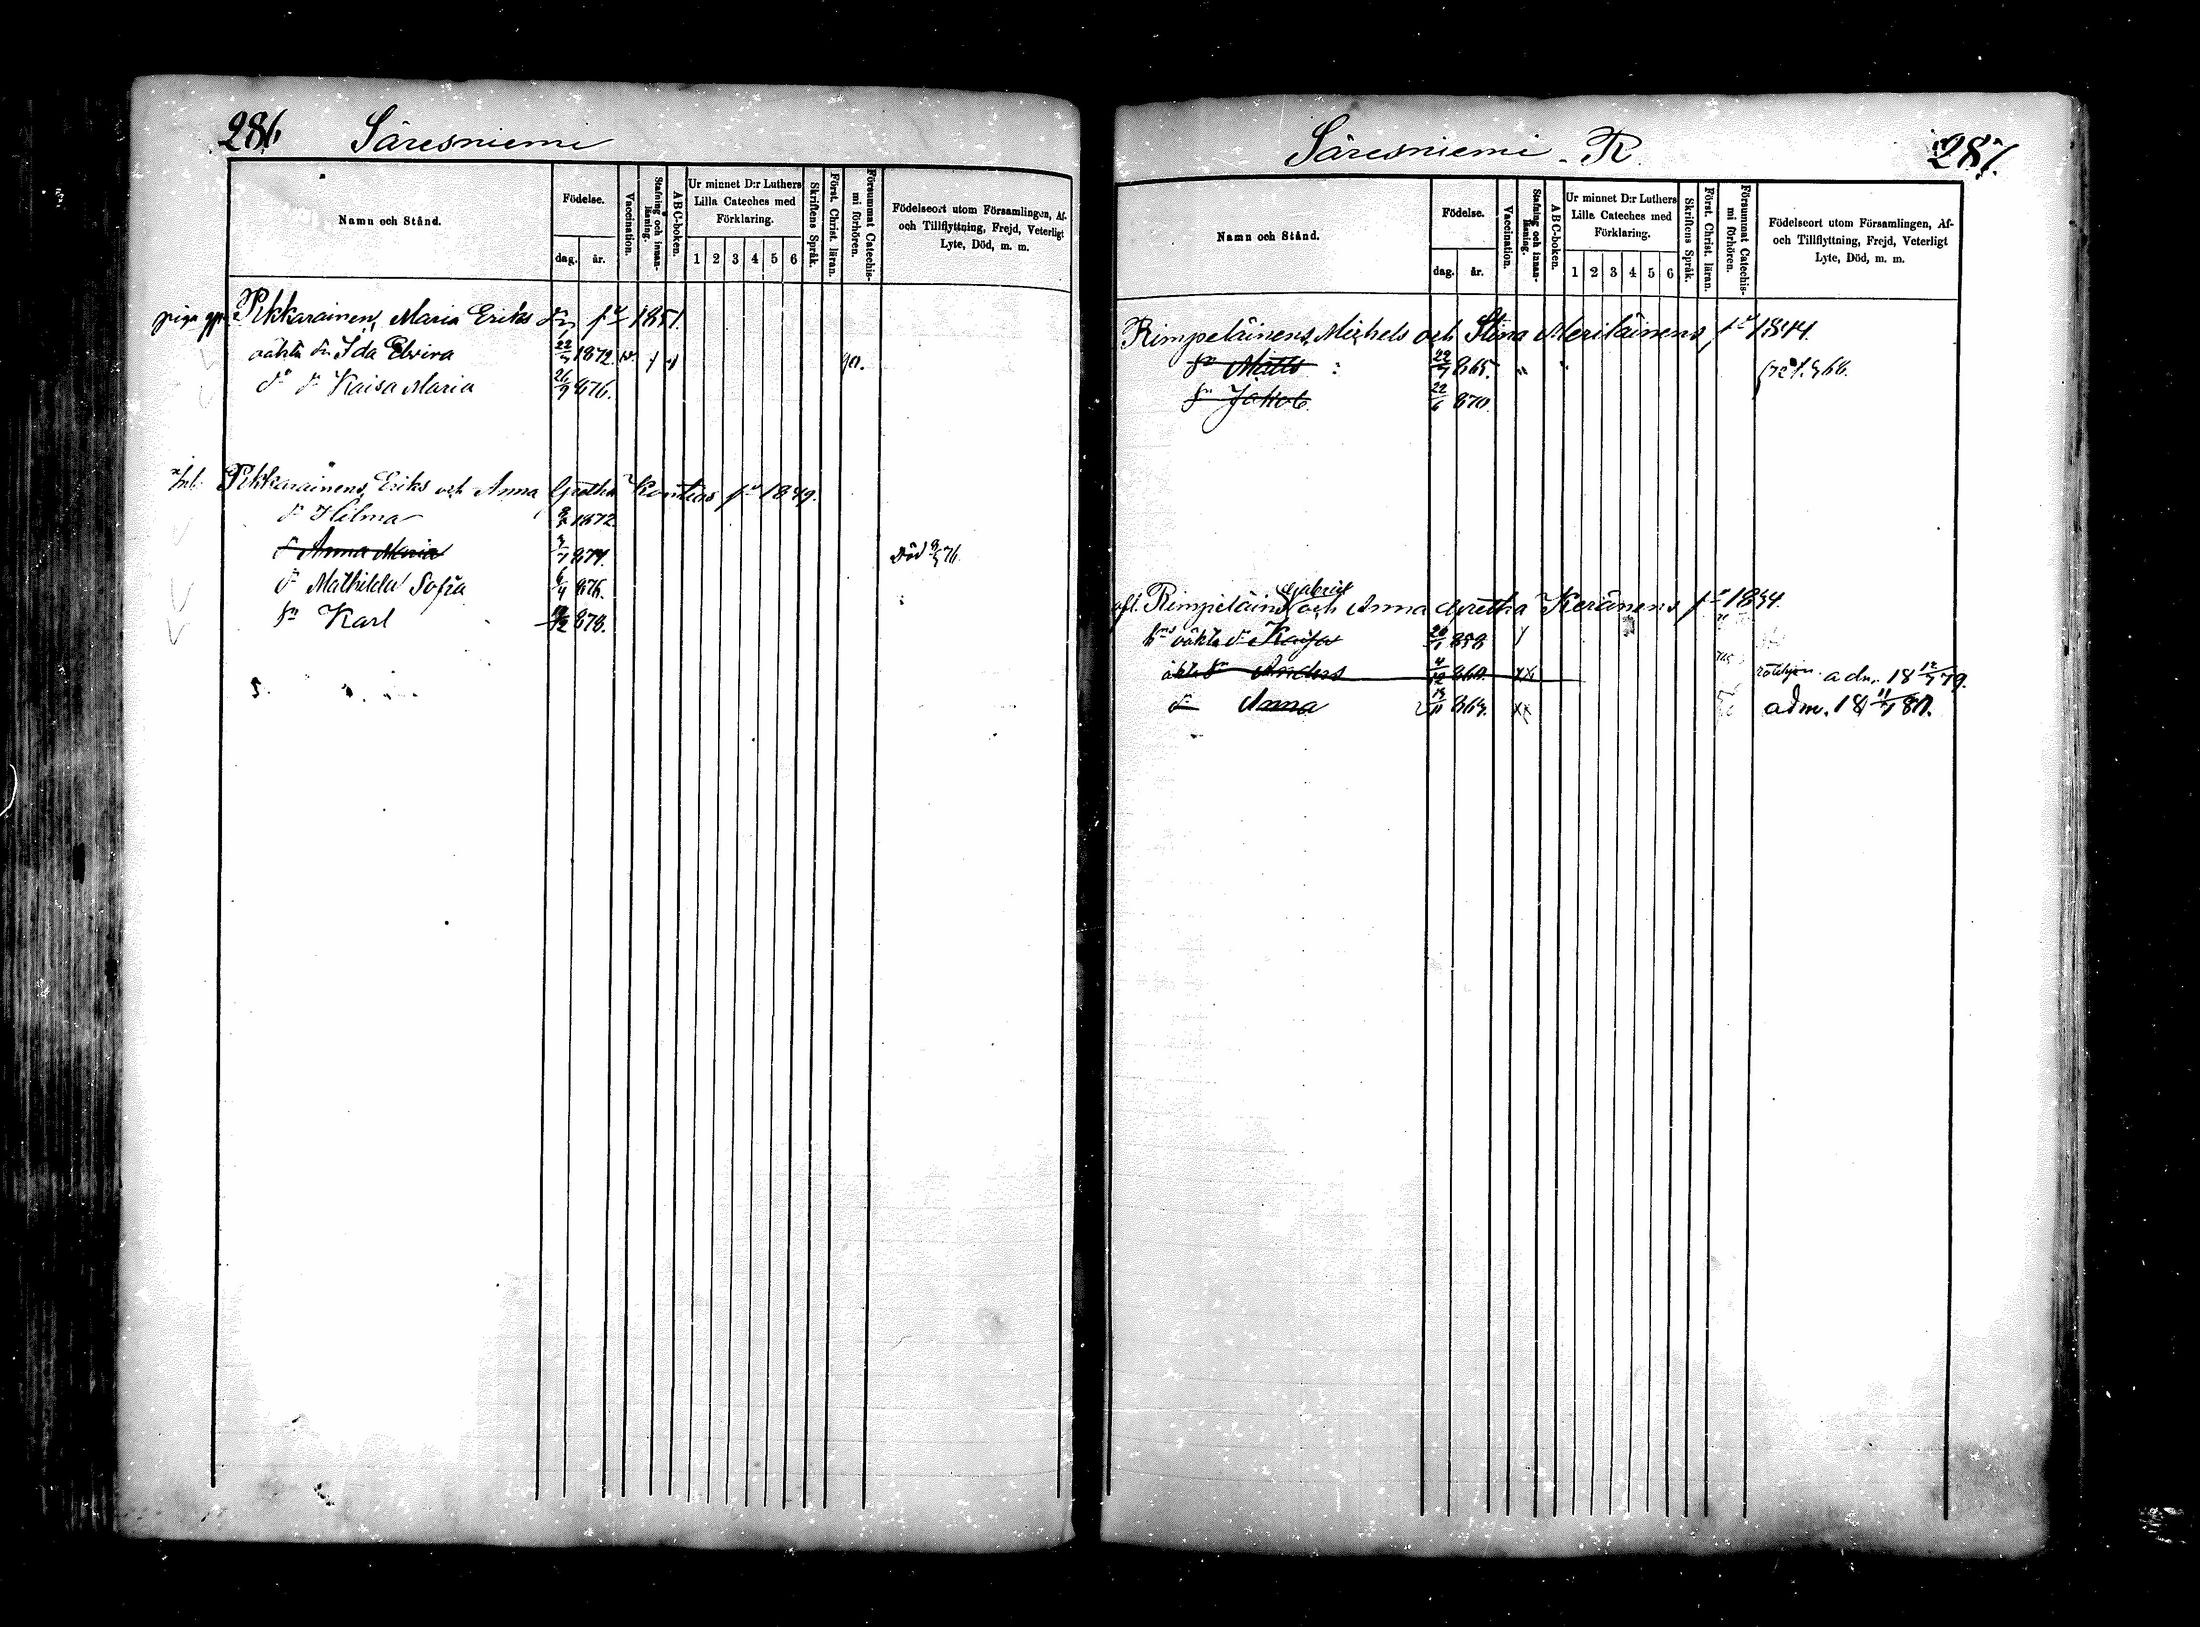 286 Säresniemi
Namn och Stånd.
Födelse.
dag. år.
Vaccination.
Stafning och innan-läsning.
ABC-boken.
Ur minnet D:r Luthers
Lilla Cateches med
Förklaring.
1 2 3 4 5 6
Skriftens Språk.
Först. Christ. läran.
Försummat Catechis-
mi förhören.
Födelseort utom Församlingen, Af-
och Tillflyttning, Frejd, Veterligt
Lyte, Död, m. m.
piga Pikkarainen, Maria Eriks dr 1851.
oäkta dr Ida Elvira 22 1872
do dr Kaisa Maria 26/9 876.
Pikkarainens, Eriks och Anna Gretha 1849.
dr Hilma 1872
dr Anna Maria 874. död 76.
dr Mathilda Sofia 876.
sn Karl 878.
Säresniemi. R. 287.
Namn och Stånd.
Födelse.
dag. år.
Vaccination.
Stafning och innan-läsning.
ABC-boken.
Ur minnet D:r Luthers
Lilla Cateches med
Förklaring.
1 2 3 4 5 6
Skriftens Språk.
Först. Christ. läran.
Försummat Catechis-
mi förhören.
Födelseort utom Församlingen, Af-
och Tillflyttning, Frejd, Veterligt
Lyte, Död, m. m.
Rimpeläinens, Michels och Stina Meriläinens, 1844.
sn Matts 865.
sn Jakob 22/6 870.
Gabriel
afl. Rimpeläins och Anna Gretha Keränens 1834.
oäkta dr Kaisa 858
äkta sn Anders 4/12 860. adm. 18 12/7 79.
dr Anna 864. adm. 18 11/7 80.